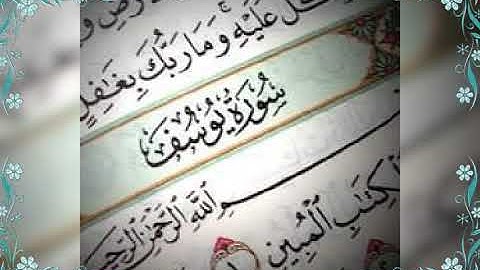 كَّلْ عَلَيْهِ وَمَا رَبُّكَ بِغَافِلٍ
سُورَةُ يُوسُفَ
بِسْمِ اللَّهِ الرَّحْمَٰنِ الرَّحِيمِ
الْكِتَابِ الْمُبِينِ ١